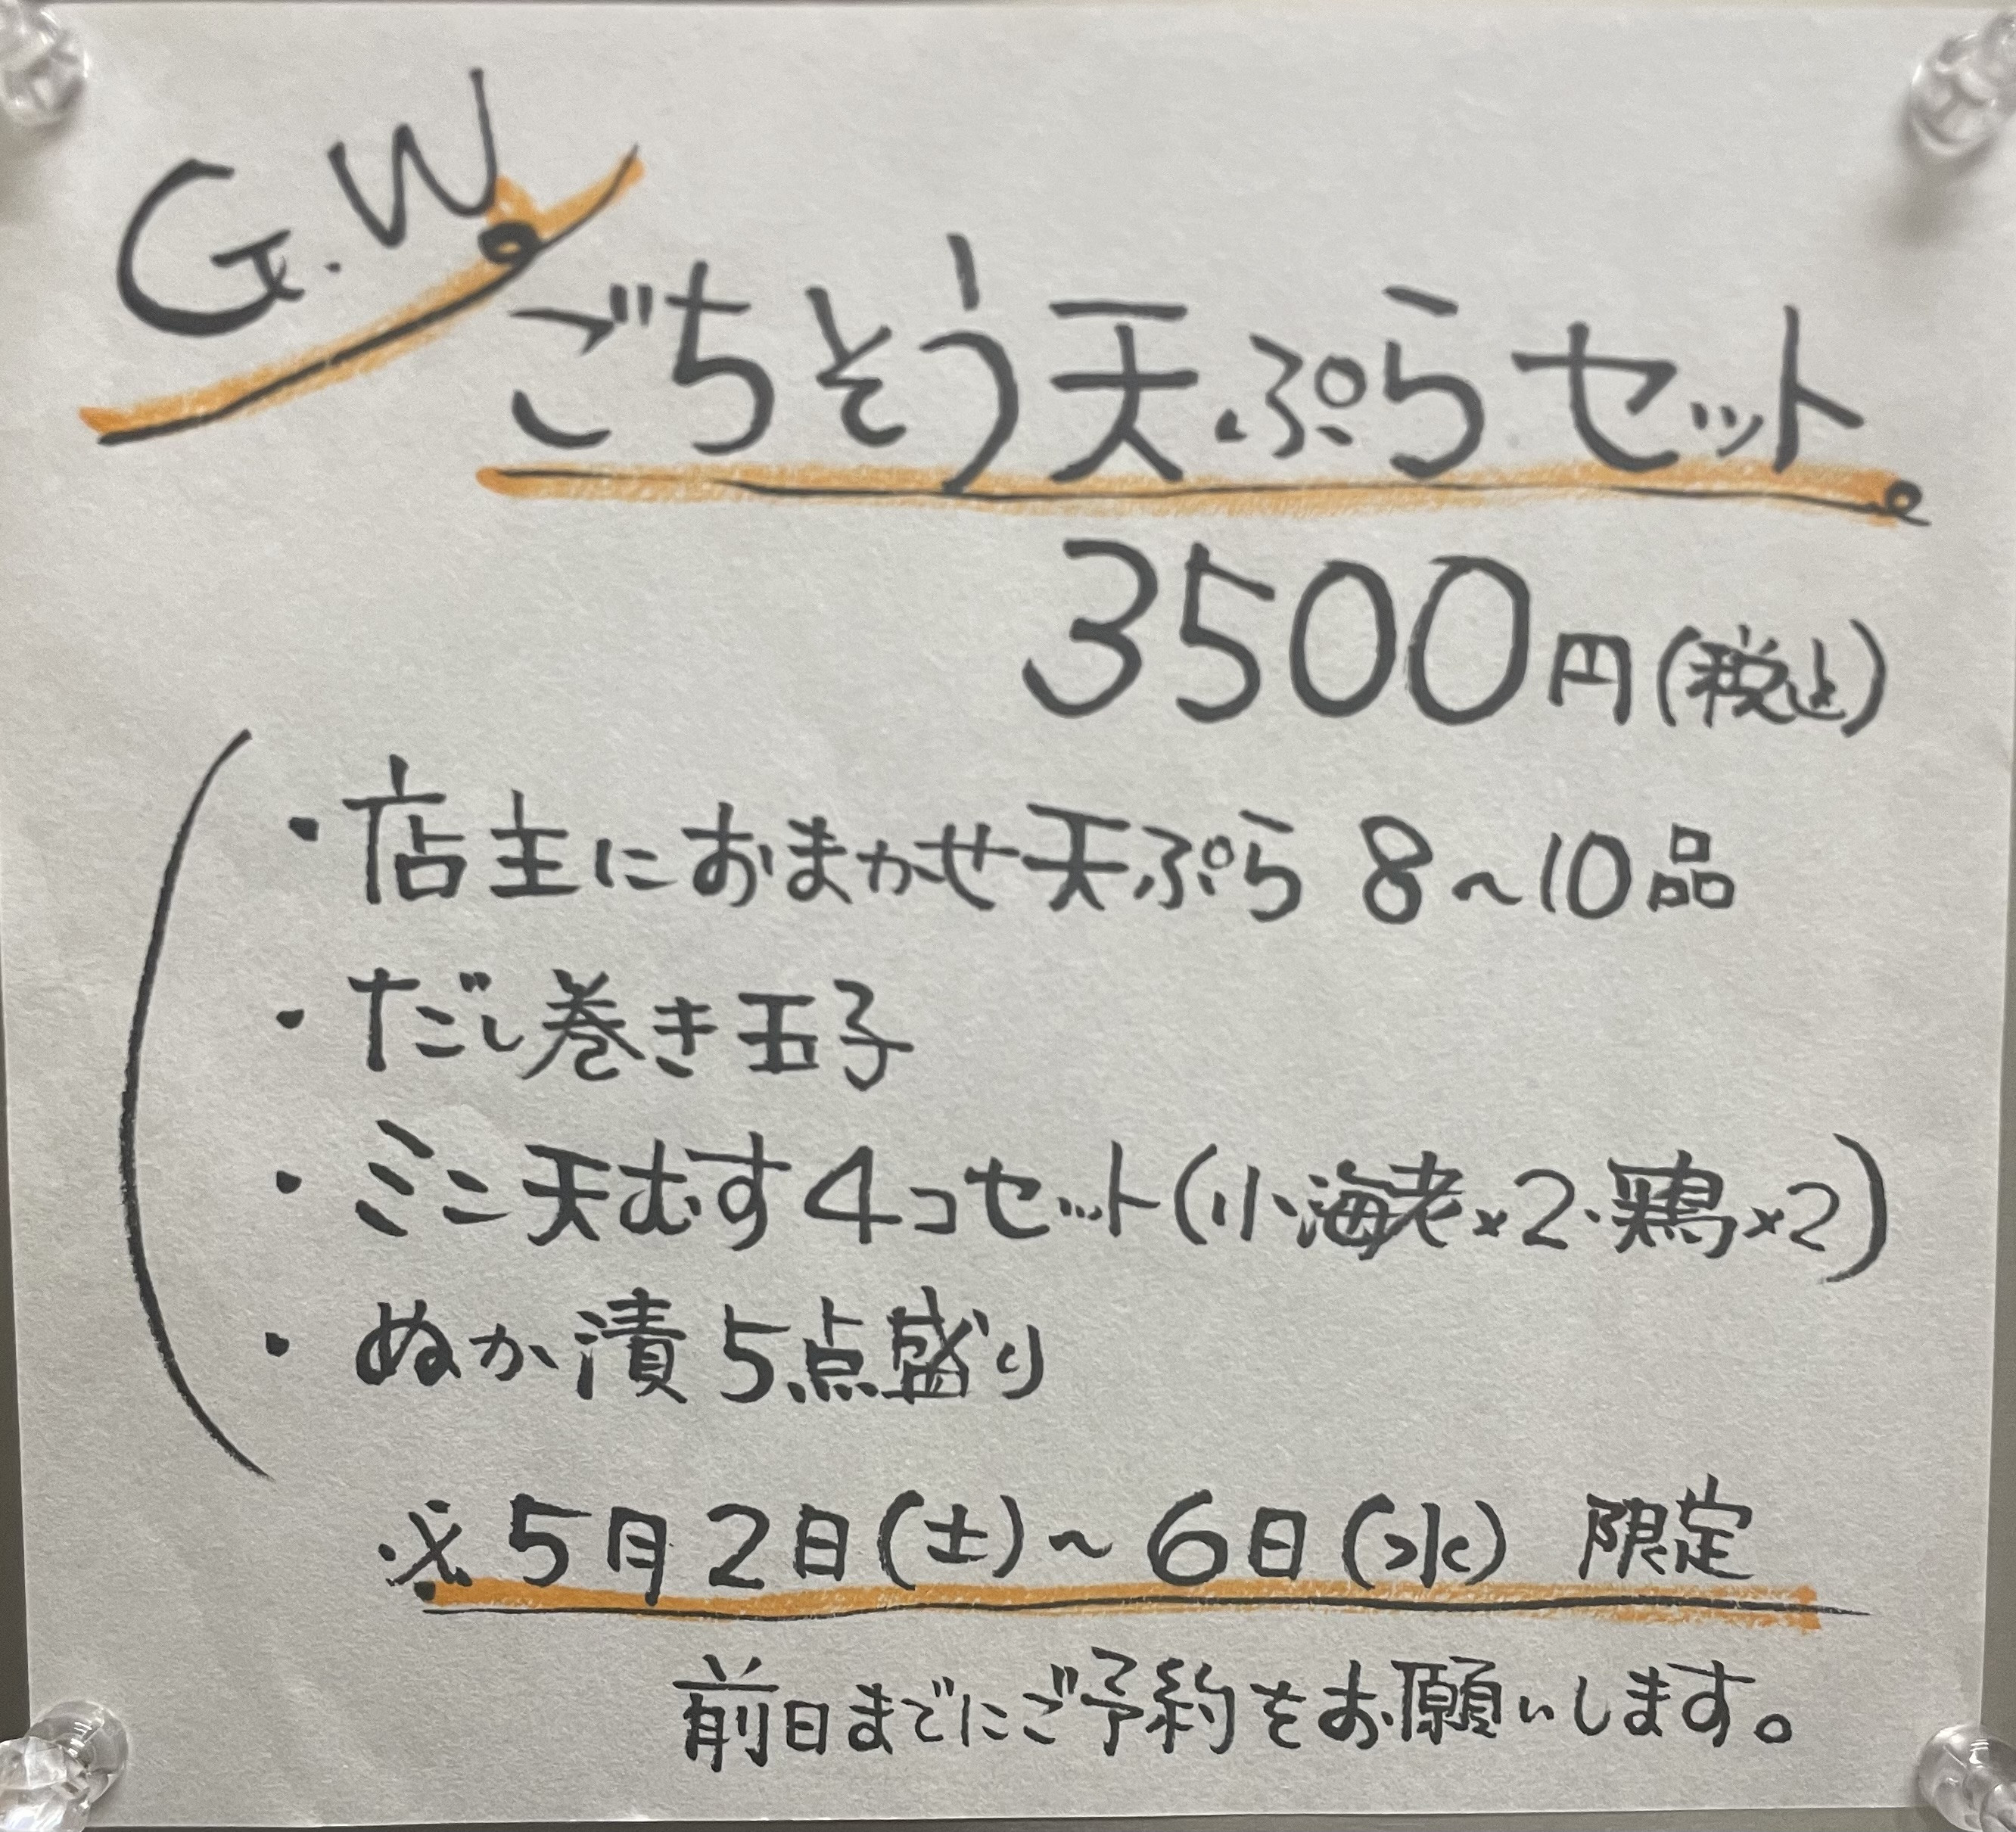 G.W
ごちそう天ぷらセット
3500円(税込)
・店主におまかせ天ぷら 8〜10品
・だし巻き玉子
・ミニ天むす4コセット(小海老×2・鶏×2)
・ぬか漬5点盛り
※5月2日(土)〜6日(水) 限定
前日までにご予約をお願いします。